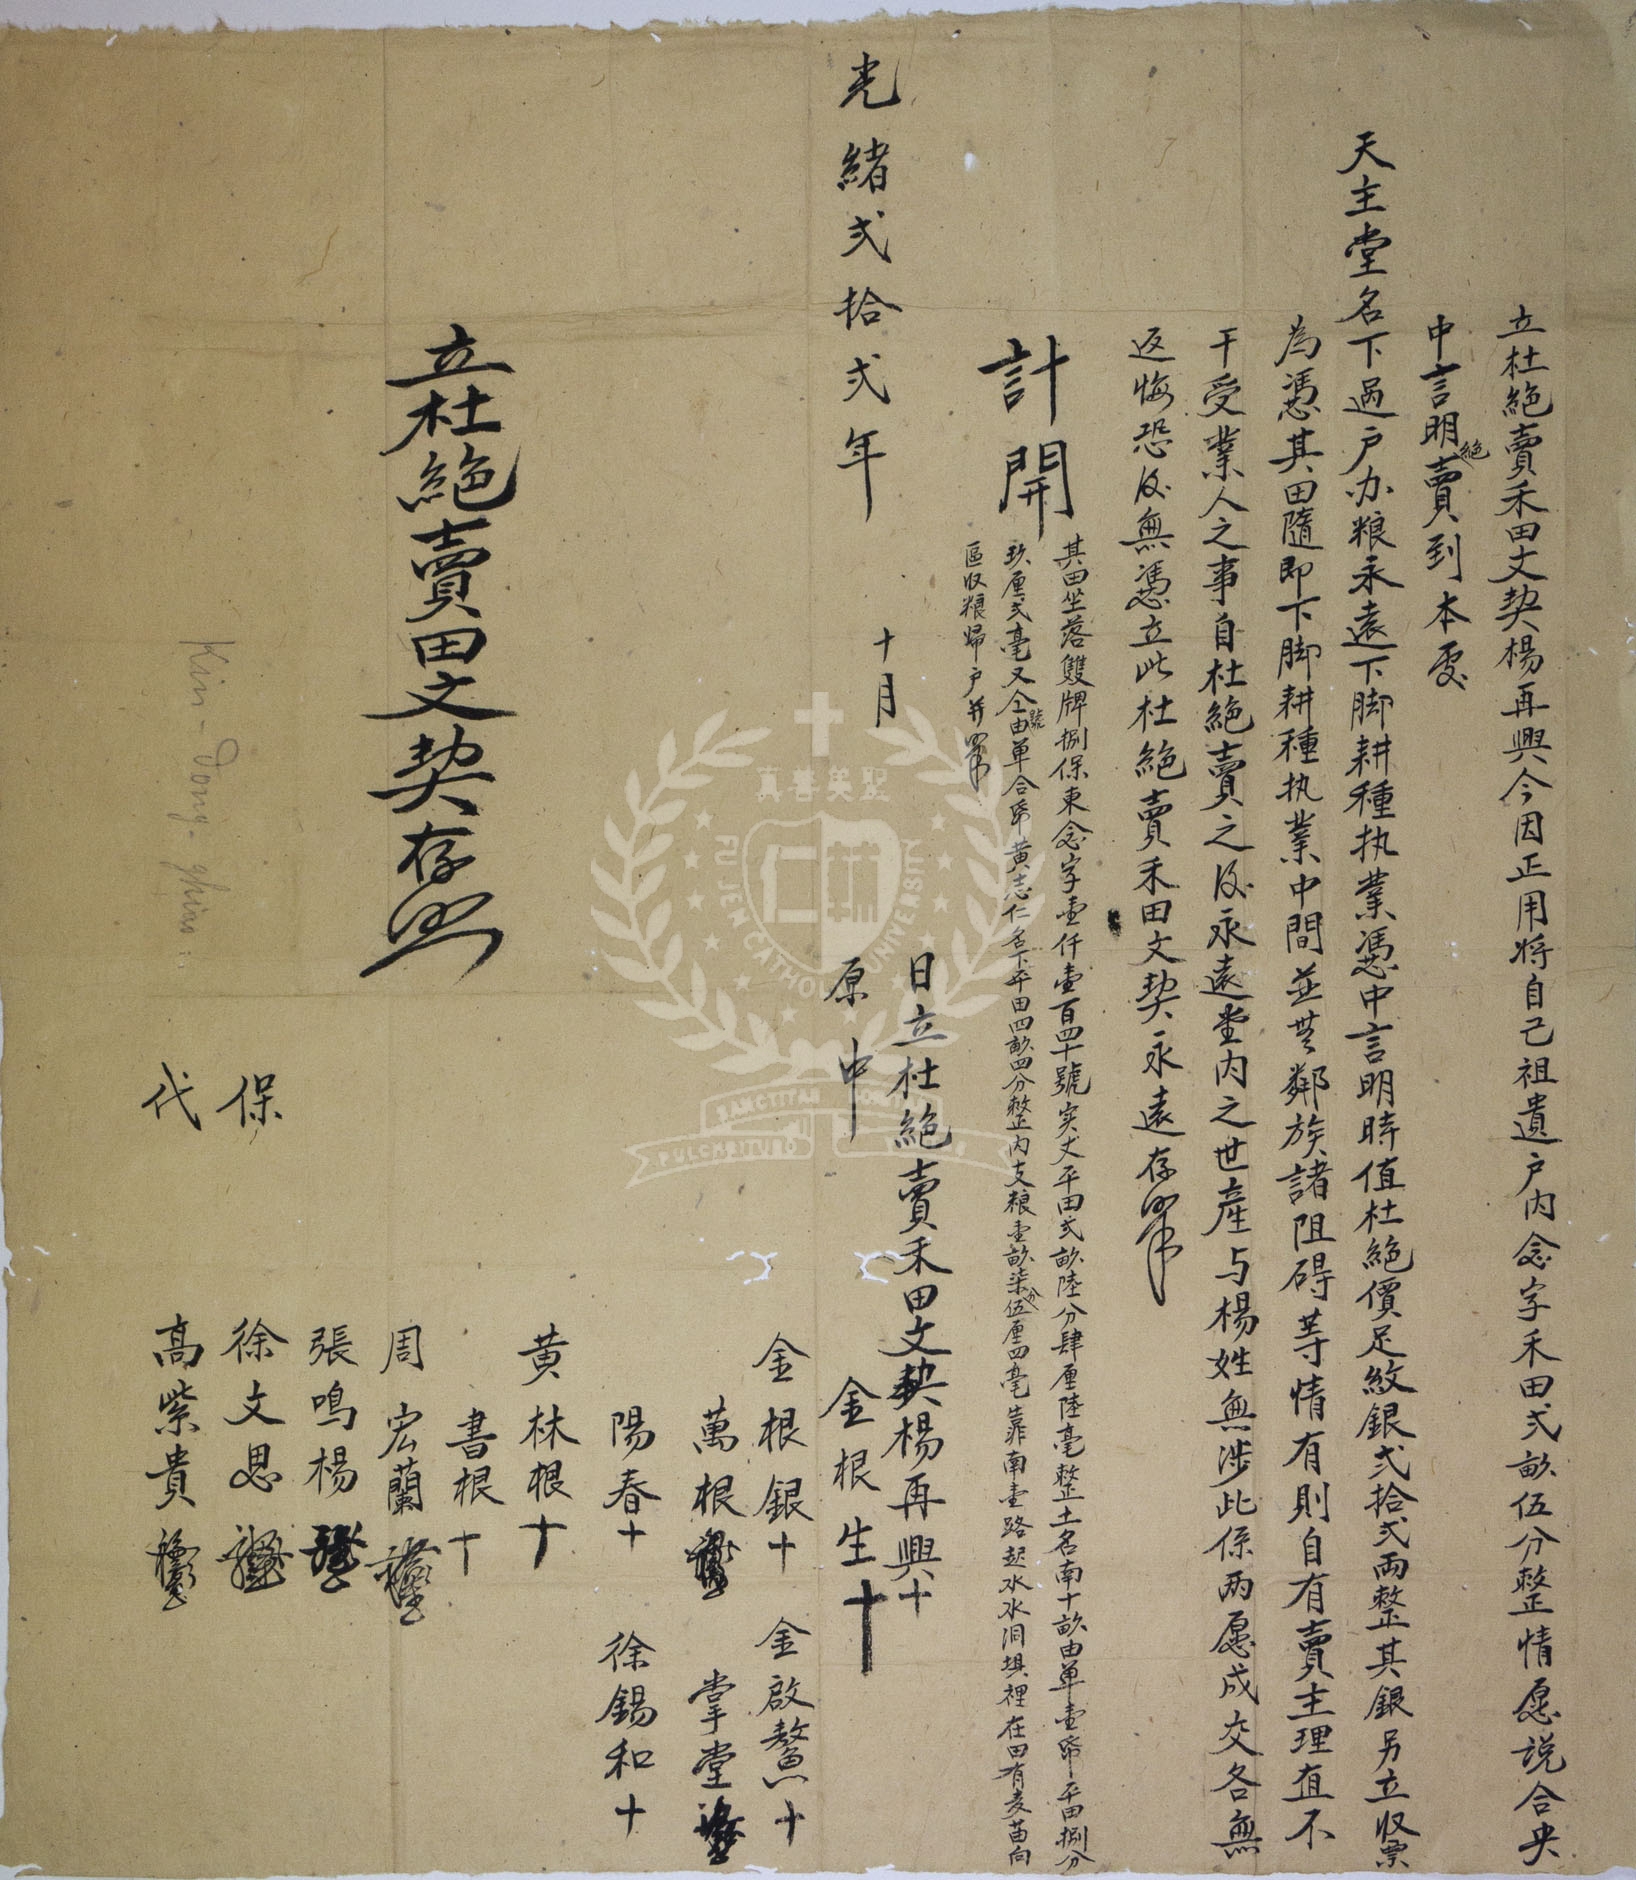 立杜絕賣禾田文契楊再興今因正用將自己祖遺户内念字禾田弍畝伍分整情愿説合央
中言明絕賣到本處
天主堂名下過户办粮永遠下脚耕種执業憑中言明時值杜絕價足紋銀弍拾弍両整其銀另立収票
為憑其田隨即下脚耕種执業中間並無鄰族諸阻碍等情有則自有賣主理直不
干受業人之事自杜絕賣之後永遠堂内之世産与楊姓無涉此係两愿成交各無
返悔恐後無憑立此杜絕賣禾田文契永遠存照
計開
其田坐落雙牌捌保東念字壹仟壹百四十號实丈平田弍畝陸分肆厘陸毫整土名南十畝由單壹帋平田捌分
玖厘弍毫又仝號由單合帋黄志仁名下平田四畝四分整内支粮壹畝柒分伍厘四毫靠南壹路起水水洞垻裡在田有麦苗向
區収粮歸户并照
光緒弍拾弍年 十月 日立杜絕賣禾田文契楊再興十
原中 金根生十
金根銀十 金啟鰲十
萬根 掌堂
陽春十 徐錫和十
黄林根十
書根十
周宏蘭
張鳴楊
保 徐文思
代 高紫貴
立杜絕賣田文契存照
Kin-Dong-ghien
真善美聖
FU JEN CATHOLIC UNIVERSITY
仁
輔
SANCTITAS BONITAS
PULCHRITUDO